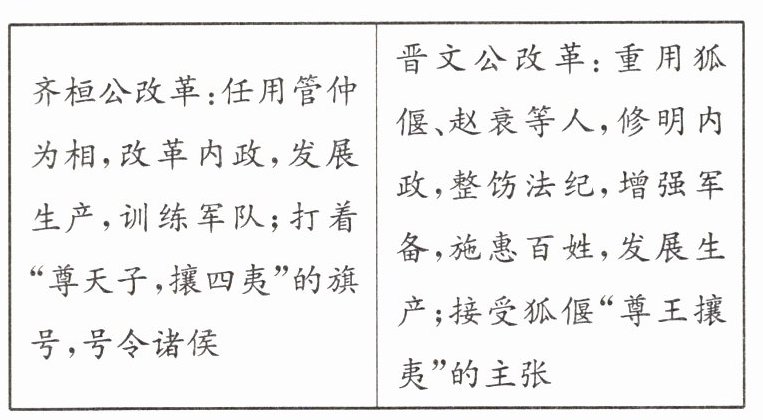 齐桓公改革:任用管仲
为相,改革内政,发展
生产,训练军队;打着
“尊天子,攘四夷”的旗
号,号令诸侯
晋文公改革:重用狐
偃、赵衰等人,修明内
政,整饬法纪,增强军
备,施惠百姓,发展生
产;接受狐偃“尊王攘
夷”的主张